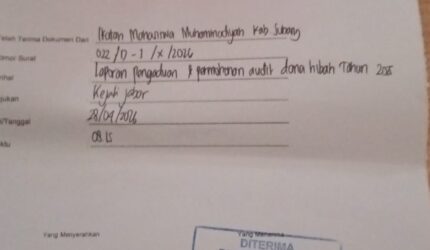 Telah Terima Dokumen Dari Ikatan Mahasiswa Muhammadiyah Kab Subang
omor Surat 022/D-I/X/2026
erihal Laporan Pengaduan & permohonan audit dana hibah Tahun 2025
jukan Kejati Jabar
i/Tanggal 28/04/2026
ktu 08.15
Yang Menyerahkan Yang Menerima
DITERIMA